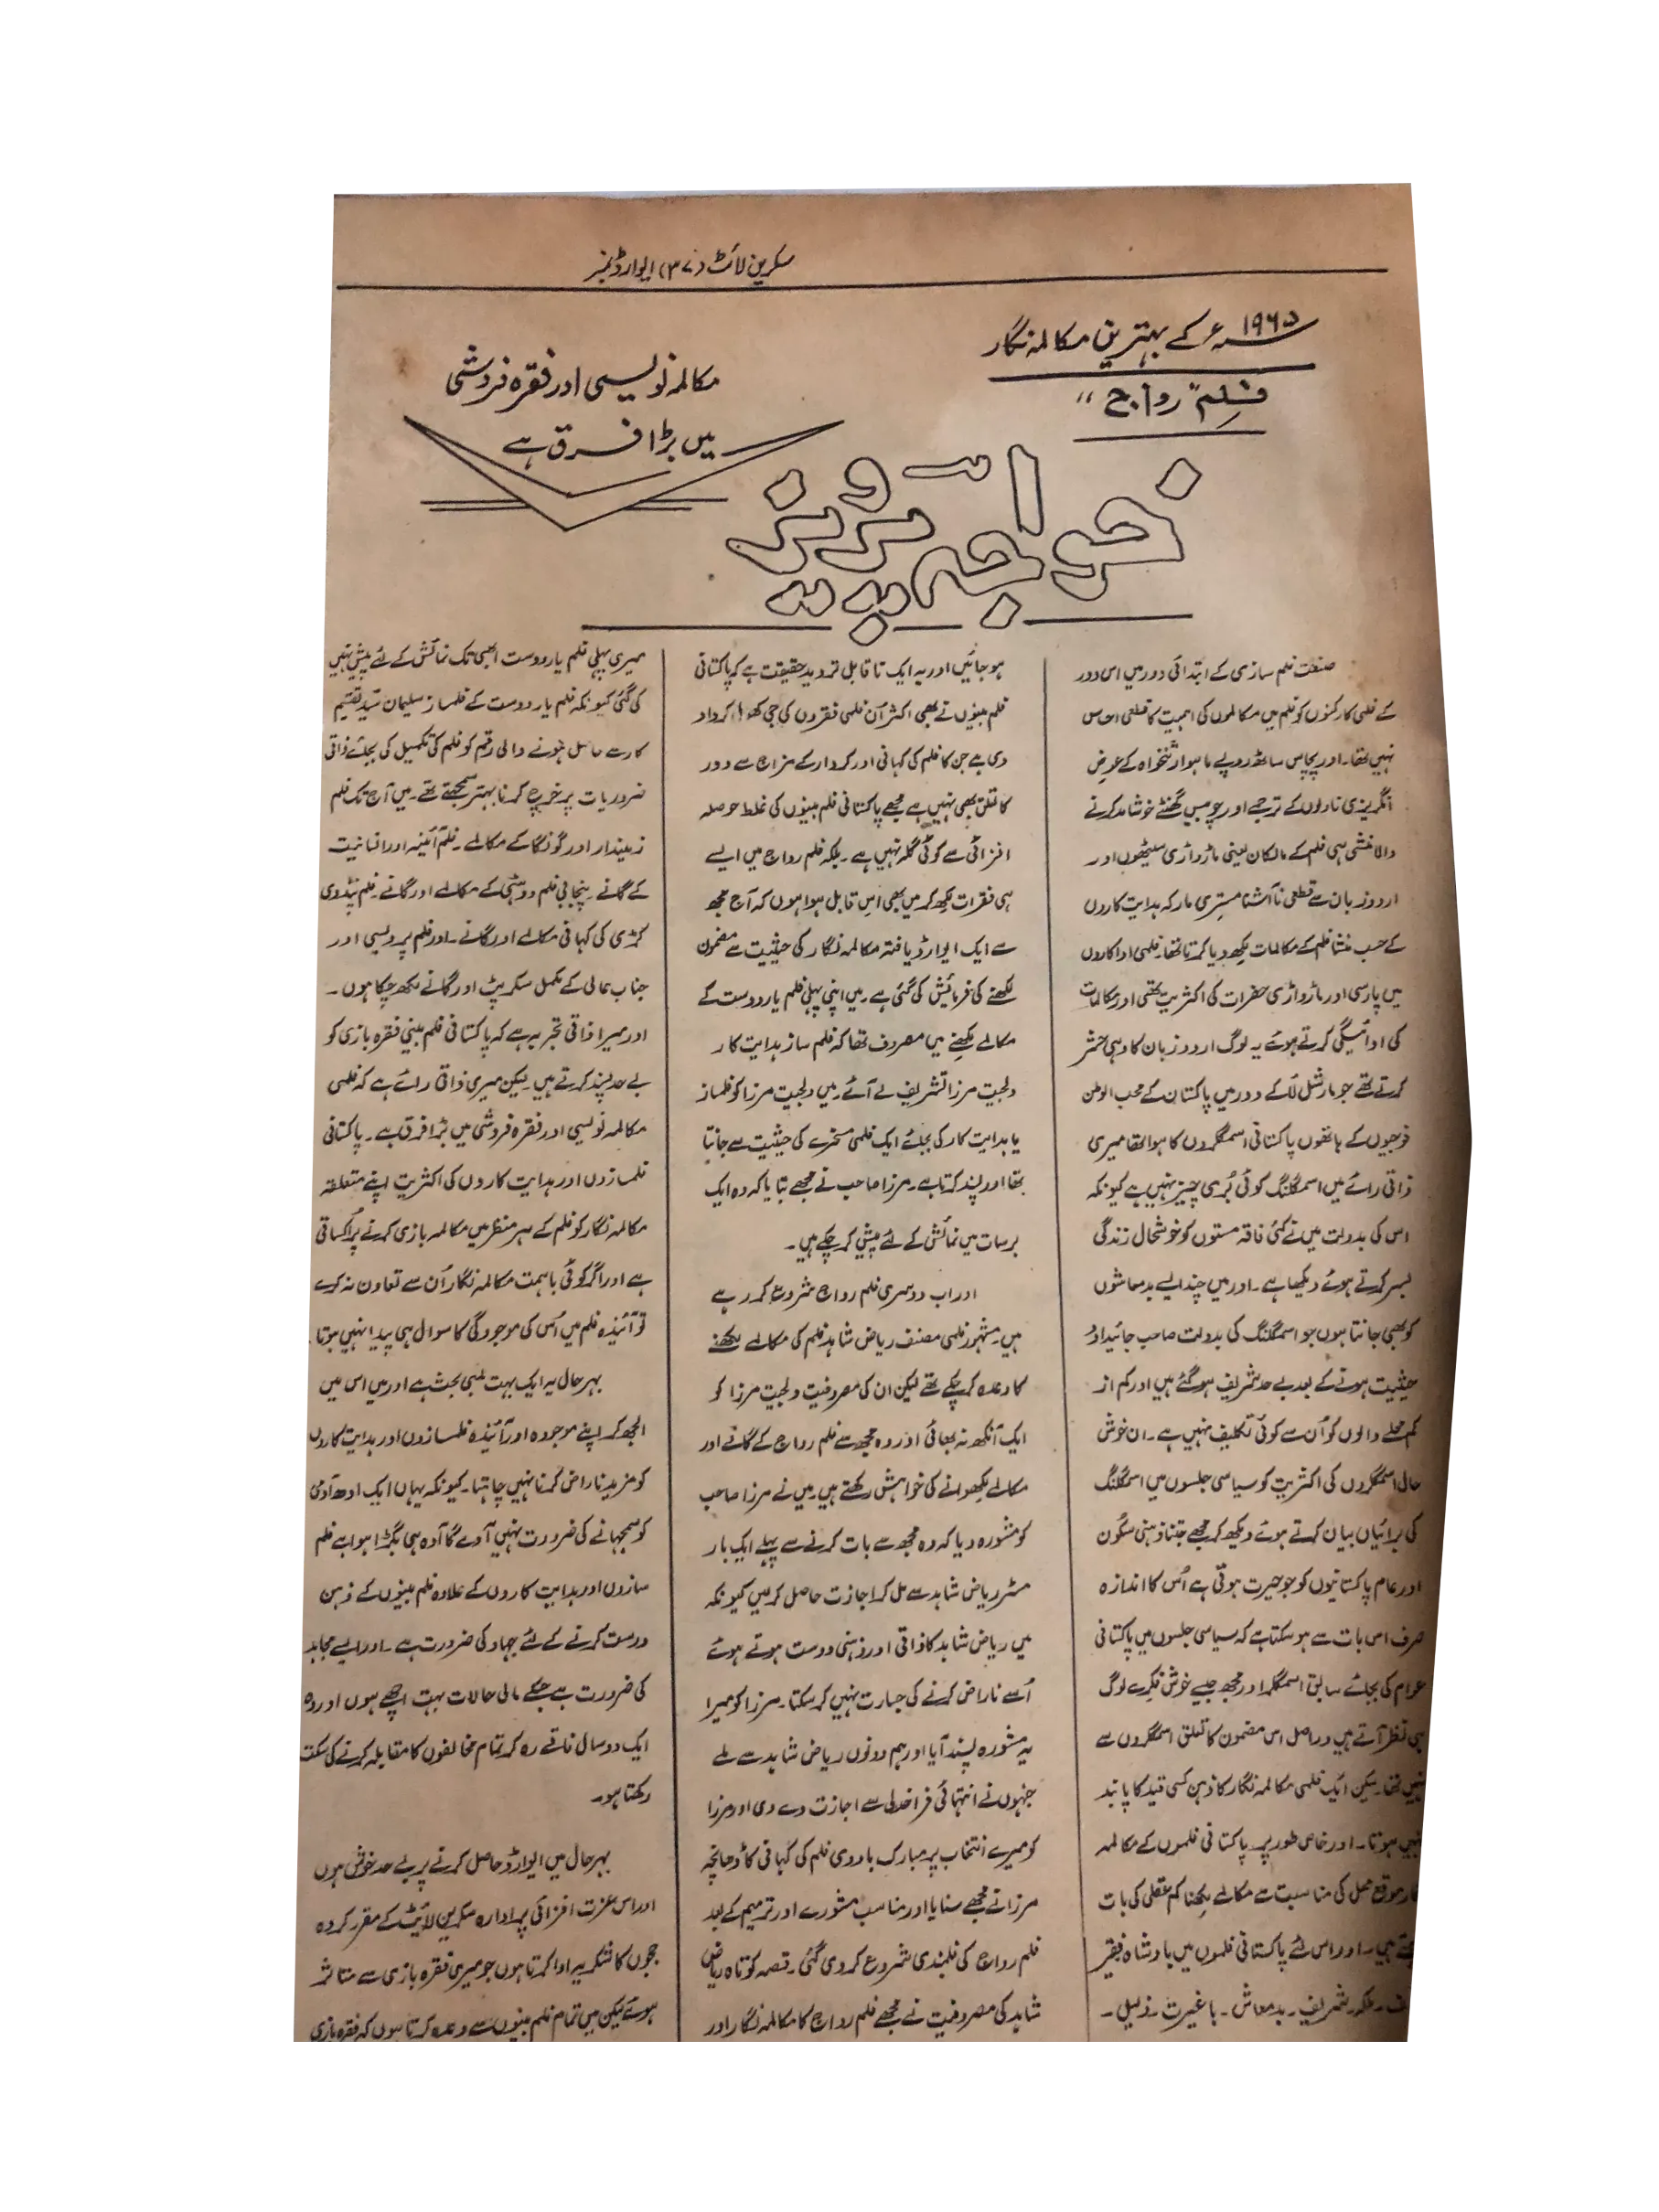 سکرین لائٹ (۳۷) ایوارڈ نمبر
۱۹۶۵ سنہء کے بہترین مکالمہ نگار
فلم "رواج"
مکالمہ نویسی اور فقرہ فروشی
میں بڑا فرق ہے
خواجہ پرویز
صنعت فلم سازی کے ابتدائی دور میں اس دور
کے فلمی کارکنوں کو فلم میں مکالموں کی اہمیت کا قطعی احساس
نہیں تھا۔ اور پچاس ساٹھ روپے ماہوار تنخواہ کے عوض
انگریزی ناولوں کے ترجمے اور چوبیس گھنٹے خوشامد کرنے
والا منشی ہی فلم کے مالکان یعنی ماڑواڑی سیٹھوں اور
اردو زبان سے قطعی ناآشنا مستری مارکہ ہدایت کاروں
کے حسب منشا فلم کے مکالمات لکھ دیا کرتا تھا۔ فلمی اداکاروں
میں پارسی اور ماڑواڑی حضرات کی اکثریت تھی اور مکالمات
کی ادائیگی کرتے ہوئے یہ لوگ اردو زبان کا وہی حشر
کرتے تھے جو مارشل لاَ کے دور میں پاکستان کے محب الوطن
فوجیوں کے ہاتھوں پاکستانی اسمگلروں کا ہوا تھا میری
ذاتی رائے میں اسمگلنگ کوئی بُری چیز نہیں ہے کیونکہ
اس کی بدولت میں نے کئی فاقہ مستوں کو خوشحال زندگی
بسر کرتے ہوئے دیکھا ہے۔ اور میں چند ایسے بدمعاشوں
کو بھی جانتا ہوں جو اسمگلنگ کی بدولت صاحب جائیداد و
حیثیت ہونے کے بعد بے حد شریف ہو گئے ہیں اور کم از
کم محلے والوں کو اُن سے کوئی تکلیف نہیں ہے۔ ان خوش
حال اسمگلروں کی اکثریت کو سیاسی جلسوں میں اسمگلنگ
کی برائیاں بیان کرتے ہوئے دیکھ کر مجھے جتنا ذہنی سکون
اور عام پاکستانیوں کو جو حیرت ہوتی ہے اُس کا اندازہ
صرف اس بات سے ہو سکتا ہے کہ سیاسی جلسوں میں پاکستانی
عوام کی بجائے سابق اسمگلر اور مجھ جیسے خوش فکرے لوگ
ہی نظر آتے ہیں دراصل اس مضمون کا تعلق اسمگلروں سے
نہیں تھا۔ لیکن ایک فلمی مکالمہ نگار کا ذہن کسی قید کا پابند
نہیں ہوتا۔ اور خاص طور پر پاکستانی فلموں کے مکالمہ
موقع محل کی مناسبت سے مکالمے لکھنا کم عقلی کی بات
ہیں۔ اور اس لئے پاکستانی فلموں میں بادشاہ فقیر
شریف۔ بدمعاش۔ باغیرت۔ ذلیل۔
ہو جائیں اور یہ ایک ناقابل تردید حقیقت ہے کہ پاکستانی
فلم بینوں نے بھی اکثر اُن فلمی فقروں کی جی کھول کر داد
دی ہے جن کا فلم کی کہانی اور کردار کے مزاج سے دور
کا تعلق بھی نہیں ہے مجھے پاکستانی فلم بینوں کی غلط حوصلہ
افزائی سے کوئی گلہ نہیں ہے۔ بلکہ فلم رواج میں ایسے
ہی فقرات لکھ کر میں بھی اس قابل ہوا ہوں کہ آج مجھ
سے ایک ایوارڈ یافتہ مکالمہ نگار کی حیثیت سے مضمون
لکھنے کی فرمائش کی گئی ہے۔ میں اپنی پہلی فلم یار دوست کے
مکالمے لکھنے میں مصروف تھا کہ فلم ساز ہدایت کار
دلجیت مرزا تشریف لے آئے۔ میں دلجیت مرزا کو فلمساز
یا ہدایت کار کی بجائے ایک فلمی مسخرے کی حیثیت سے جانتا
تھا اور پسند کرتا ہے۔ مرزا صاحب نے مجھے بتایا کہ وہ ایک
برسات میں نمائش کے لئے پیش کر چکے ہیں۔
اور اب دوسری فلم رواج شروع کر رہے
ہیں۔ مشہور فلمی مصنف ریاض شاہد فلم کی مکالمے لکھنے
کا وعدہ کر چکے تھے لیکن ان کی مصروفیت دلجیت مرزا کو
ایک آنکھ نہ بھائی اور وہ مجھ سے فلم رواج کے گانے اور
مکالمے لکھوانے کی خواہش رکھتے ہیں۔ میں نے مرزا صاحب
کو مشورہ دیا کہ وہ مجھ سے بات کرنے سے پہلے ایک بار
مسٹر ریاض شاہد سے مل کر اجازت حاصل کر لیں کیونکہ
میں ریاض شاہد کا ذاتی اور ذہنی دوست ہوتے ہوئے
اُسے ناراض کرنے کی جسارت نہیں کر سکتا۔ مرزا کو میرا
یہ مشورہ پسند آیا اور ہم دونوں ریاض شاہد سے ملے
جنہوں نے انتہائی فراخدلی سے اجازت دے دی اور مرزا
کو میرے انتخاب پر مبارک باد دی فلم کی کہانی کا ڈھانچہ
مرزا نے مجھے سنایا اور مناسب مشورے اور ترمیم کے بعد
فلم رواج کی فلمبندی شروع کر دی گئی۔ قصہ کوتاہ ریاض
شاہد کی مصروفیت نے مجھے فلم رواج کا مکالمہ نگار اور
میری پہلی فلم یار دوست ابھی تک نمائش کے لئے پیش نہیں
کی گئی کیونکہ فلم یار دوست کے فلمساز سلیمان سیّد تقسیم
کار سے حاصل ہونے والی رقم کو فلم کی تکمیل کی بجائے ذاتی
ضروریات پر خرچ کرنا بہتر سمجھتے تھے۔ میں آج تک فلم
زمیندار اور گونگا کے مکالمے۔ فلم آئینہ اور انسانیت
کے گانے۔ پنجابی فلم ووہٹی کے مکالمے اور گانے۔ فلم پنڈ دی
کڑی کی کہانی مکالمے اور گانے۔ اور فلم پردیسی اور
جناب عالی کے مکمل سکرپٹ اور گانے لکھ چکا ہوں۔
اور میرا ذاتی تجربہ ہے کہ پاکستانی فلم بین فقرہ بازی کو
بے حد پسند کرتے ہیں۔ لیکن میری ذاتی رائے ہے کہ فلمی
مکالمہ نویسی اور فقرہ فروشی میں بڑا فرق ہے۔ پاکستانی
فلمسازوں اور ہدایت کاروں کی اکثریت اپنے متعلقہ
مکالمہ نگار کو فلم کے ہر منظر میں مکالمہ بازی کرنے پر اُکساتی
ہے اور اگر کوئی باہمت مکالمہ نگار اُن سے تعاون نہ کرے
تو آئندہ فلم میں اُس کی موجودگی کا سوال ہی پیدا نہیں ہوتا
بہر حال یہ ایک بہت لمبی بحث ہے اور میں اس میں
الجھ کر اپنے موجودہ اور آئندہ فلمسازوں اور ہدایت کاروں
کو مزید ناراض کرنا نہیں چاہتا۔ کیونکہ یہاں ایک اودھ آدمی
کو سمجھانے کی ضرورت نہیں آوے گا آوہ ہی بگڑا ہوا ہے فلم
سازوں اور ہدایت کاروں کے علاوہ فلم بینوں کے ذہن
درست کرنے کے لئے جہاد کی ضرورت ہے۔ اور ایسے مجاہد
کی ضرورت ہے جسکے مالی حالات بہت اچھے ہوں اور وہ
ایک دو سال فاقے رہ کر تمام مخالفوں کا مقابلہ کرنے کی سکت
رکھتا ہو۔
بہر حال میں ایوارڈ حاصل کرنے پر بے حد خوش ہوں
اور اس عزت افزائی پر ادارہ سکرین لائیٹ کے مقرر کردہ
ججوں کا شکریہ ادا کرتا ہوں جو میری فقرہ بازی سے متاثر
ہوئے لیکن میں تمام فلم بینوں سے وعدہ کرتا ہوں کہ فقرہ بازی